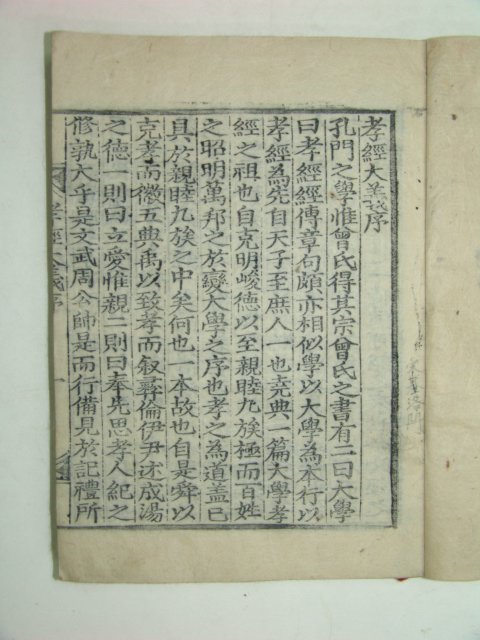 孝經大義序
孔門之學惟曾氏得其宗曾氏之書有二曰大學
曰孝經經傳章句頗亦相似學以大學為本行以
孝經為先自天子至庶人一也堯典一篇大學孝
經之祖也自克明峻德以至親睦九族極而百姓
之昭明萬邦之於變大學之序也孝之為道盖已
具於親睦九族之中矣何也一本故也自是舜以
克孝而徽五典禹以致孝而叙彝倫伊尹述成湯
之德一則曰立愛惟親二則曰奉先思孝人紀之
修孰大乎是文武周公帥是而行備見於記禮所
孝經大義序
一